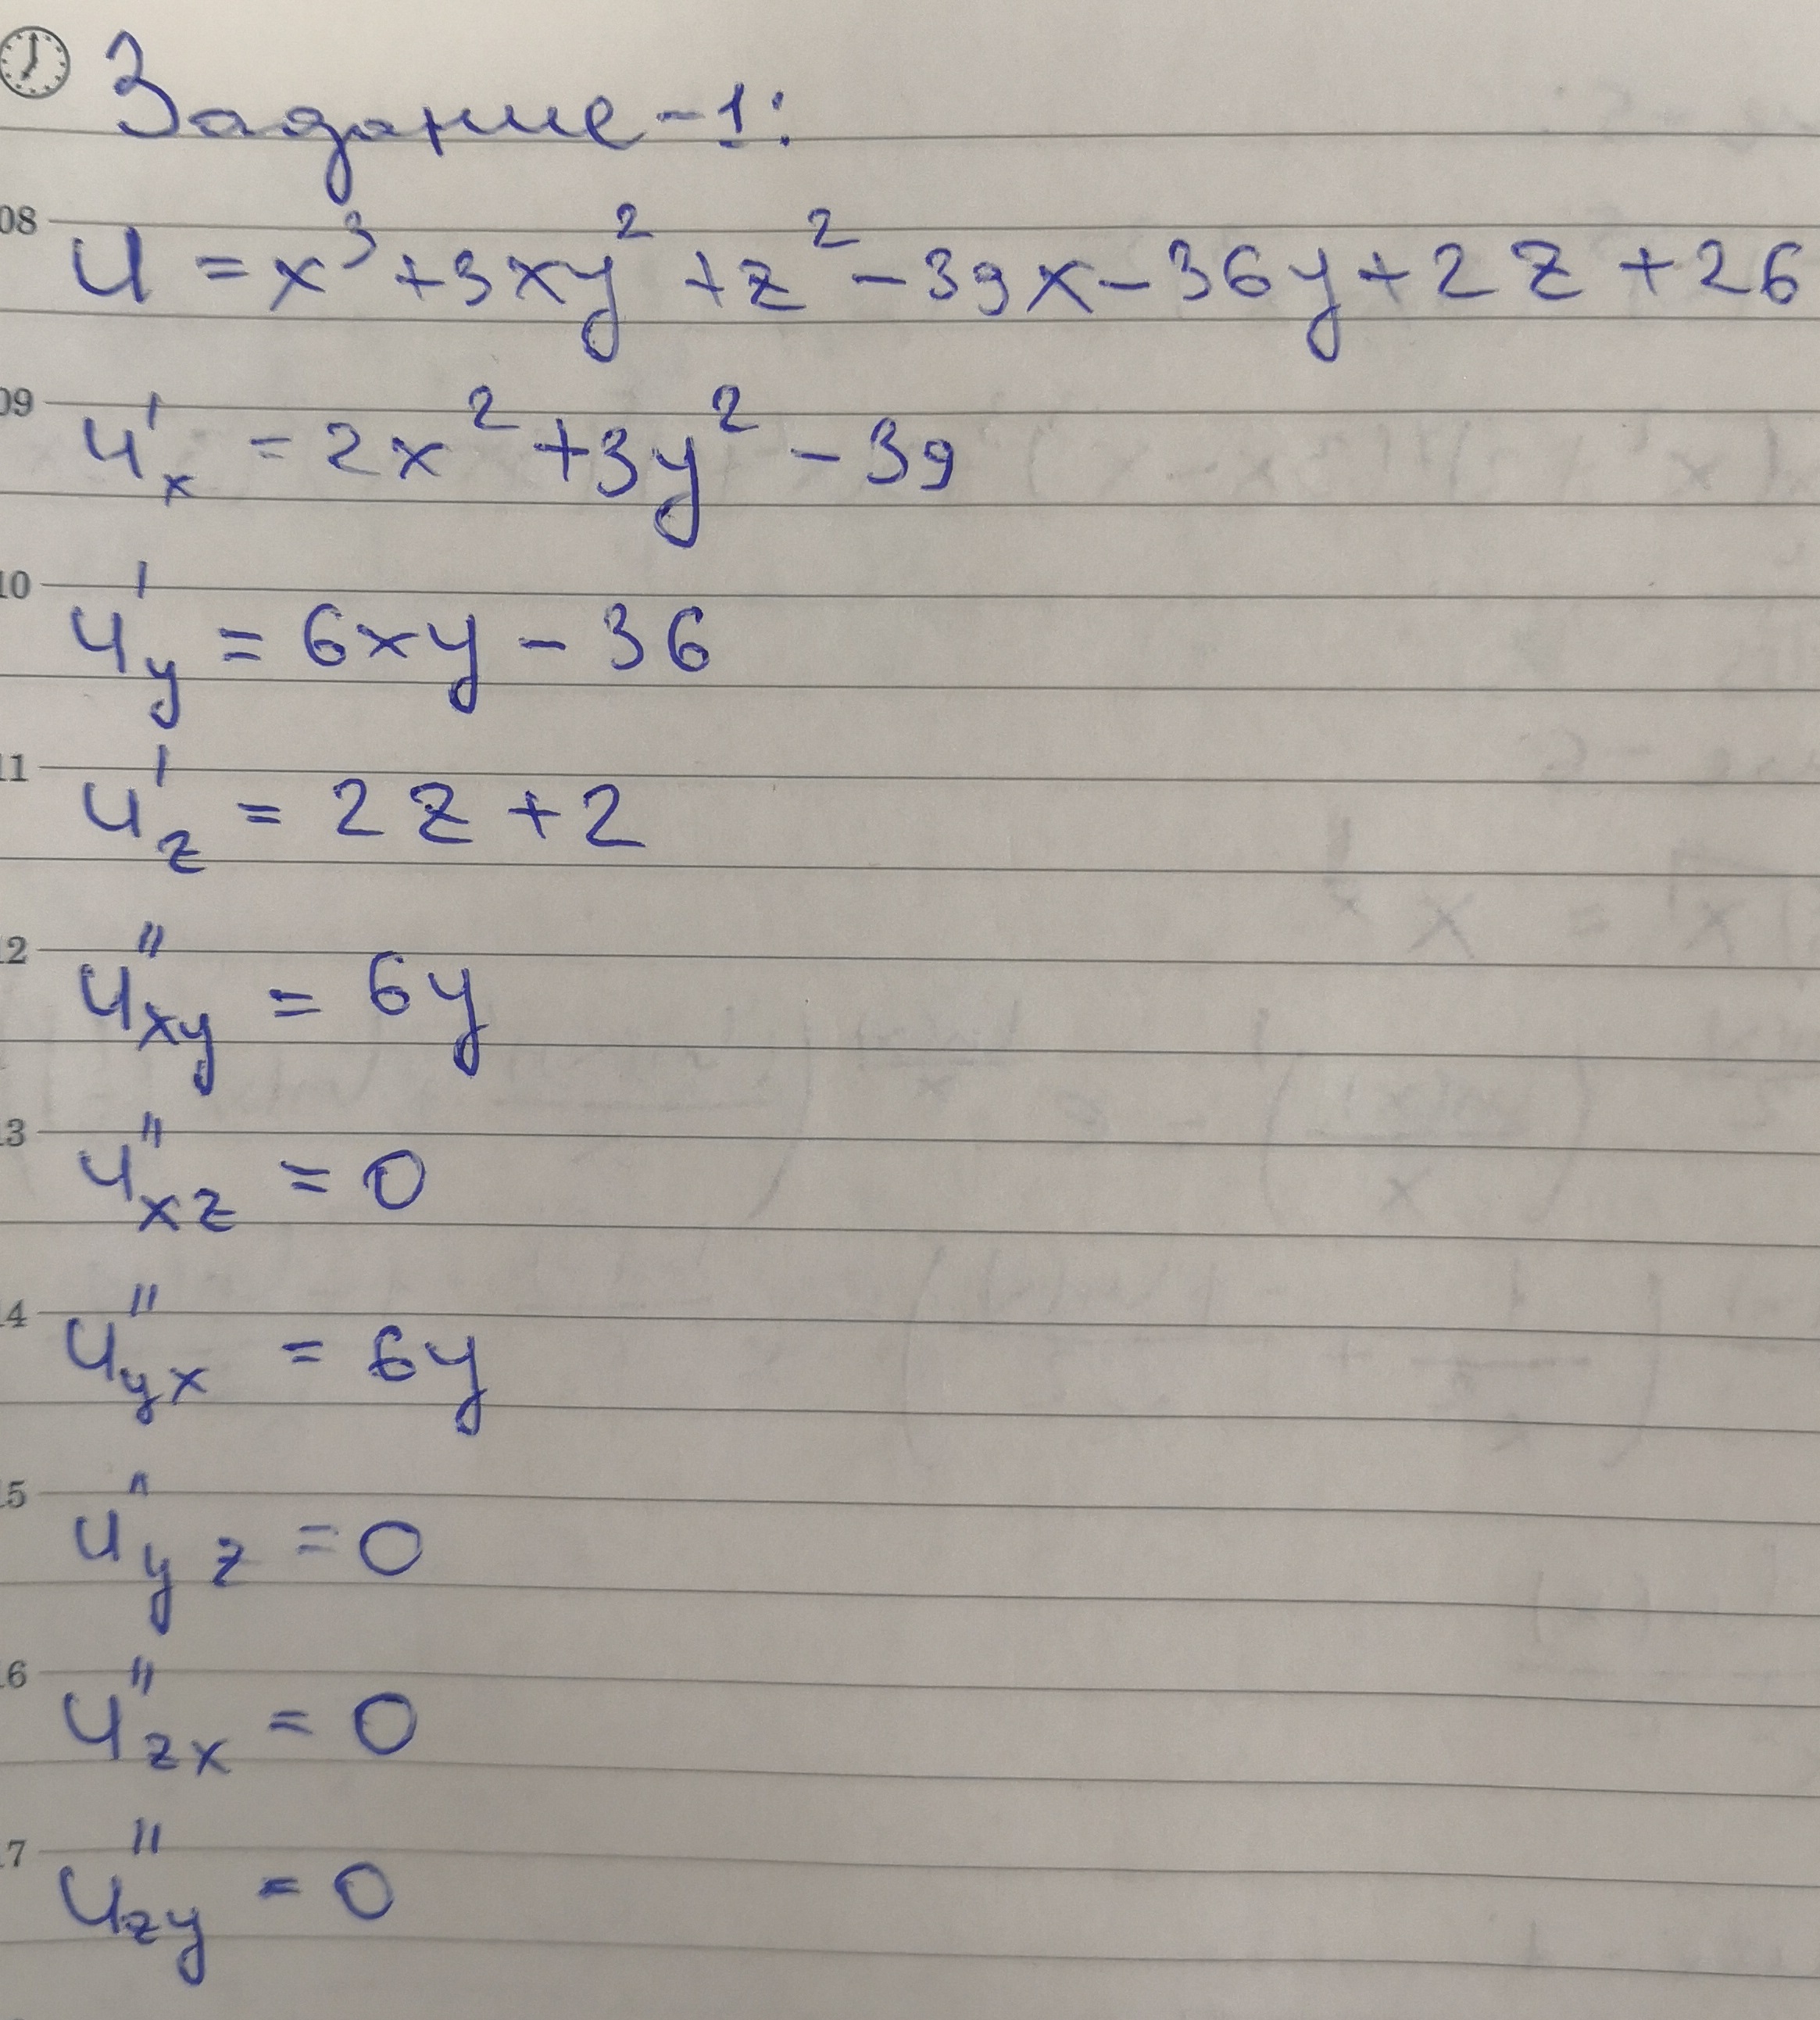 Задание-1:
08
U = x³ + 3xy² + z² - 39x - 36y + 2z + 26
09
U'ₓ = 2x² + 3y² - 39
10
U'y = 6xy - 36
11
U'z = 2z + 2
12
U''xy = 6y
13
U''xz = 0
14
U''yx = 6y
15
U''yz = 0
16
U''zx = 0
17
U''zy = 0